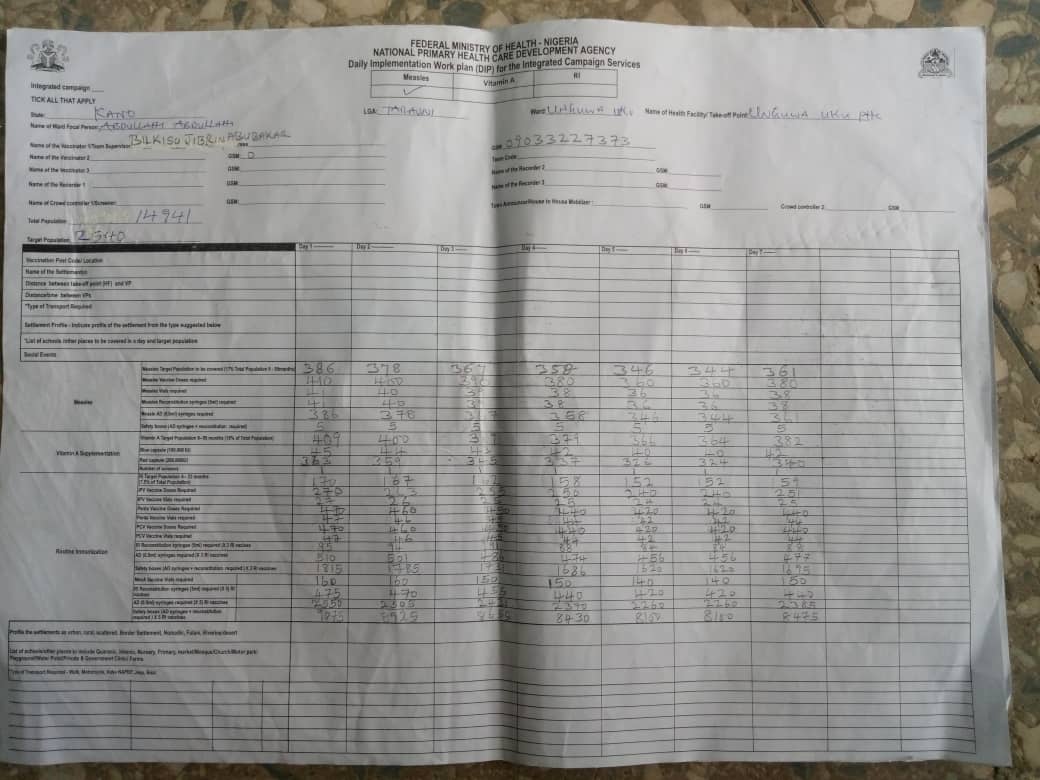 FEDERAL MINISTRY OF HEALTH - NIGERIA
NATIONAL PRIMARY HEALTH CARE DEVELOPMENT AGENCY
Daily Implementation Work plan (DIP) for the Integrated Campaign Services
Measles Vitamin A RI
Integrated campaign
TICK ALL THAT APPLY
State: KANO LGA: TARAUNI Ward UNGUWA UKU Name of Health Facility/ Take-off Point UNGUWA UKU PHC
Name of Ward Focal Person: ABDULLAHI ABDULLAHI
Name of the Vaccinator 1/Team Supervisor BILKISU JIBRIN ABUBAKAR GSM: 09033227373
Name of the Vaccinator 2 GSM: Team Code
Name of the Vaccinator 3 GSM: Name of the Recorder 2 GSM:
Name of the Recorder 1 GSM: Name of the Recorder 3 GSM:
Name of Crowd controller 1/Screener: GSM: Town Announcer/House to House Mobilizer: GSM: Crowd controller 2: GSM:
Total Population 14941
Target Population 2540
Day 1 Day 2 Day 3 Day 4 Day 5 Day 6 Day 7
Vaccination Post Code/ Location
Name of the Settlement(s)
Distance between take-off point (HF) and VP
Distance/time between VPs
*Type of Transport Required
Settlement Profile - Indicate profile of the settlement from the type suggested below
*List of schools /other places to be covered in a day and target population
Social Events
Measles
Measles Target Population to be covered (17% Total Population 9 - 59months) 386 378 367 358 346 344 361
Measles Vaccine Doses required 410 400 390 380 360 360 380
Measles Vials required 41 40 39 38 36 36 38
Measles Reconstitution syringes (5ml) required 41 40 39 38 36 36 38
Measle AD (0.5ml) syringes required 386 378 367 358 346 344 361
Safety boxes (AD syringes + reconstitution required) 5 5 5 5 5 5 5
Vitamin A Supplementation
Vitamin A Target Population 6-59 months (18% of Total Population) 409 400 379 366 364 382
Blue capsule (100,000 IU) 45 44 42 40 40 42
Red capsule (200,000IU) 363 359 345 337 326 324 340
Number of scissors 1 1 1 1 1 1
Routine Immunization
RI Target Population 0 - 23 months (7.5% of Total Population) 170 167 162 158 152 152 159
IPV Vaccine Doses Required 270 263 255 250 240 240 251
IPV Vaccine Vials required 27 26 25 25 24 24 25
Penta Vaccine Doses Required 470 460 450 440 420 420 440
Penta Vaccine Vials required 47 46 45 44 42 42 44
PCV Vaccine Doses Required 470 460 450 440 420 420 440
PCV Vaccine Vials required 47 46 45 44 42 42 44
RI Reconstitution syringes (5ml) required X 3 RI vaccines 95 94 91 88 84 84 88
AD (0.5ml) syringes required (X 3 RI vaccines) 510 501 486 474 456 456 477
Safety boxes (AD syringes + reconstitution required) X 3 RI vaccines 1815 1785 1686 1620 1620 1695
MenA Vaccine Vials required 160 160 150 150 140 140 150
RI Reconstitution syringes (5ml) required (X 5) RI vaccines 475 470 455 440 420 420 440
AD (0.5ml) syringes required (X 5) RI vaccines 2550 2505 2390 2260 2260 2385
Safety boxes (AD syringes + reconstitution required) X 5 RI vaccines 8925 8430 8100 8100 8475
Profile the settlements as urban, rural, scattered, Border Settlement, Nomadic, Fulani, Riverine/desert
List of schools/other places to include Quranic, Islamic, Nursery, Primary, market/Mosque/Church/Motor park/
Playground/Water Point/Private & Government Clinic/ Farms
*Type of Transport Required - Walk, Motorcycle, Keke NAPEP, Jeep, Boat